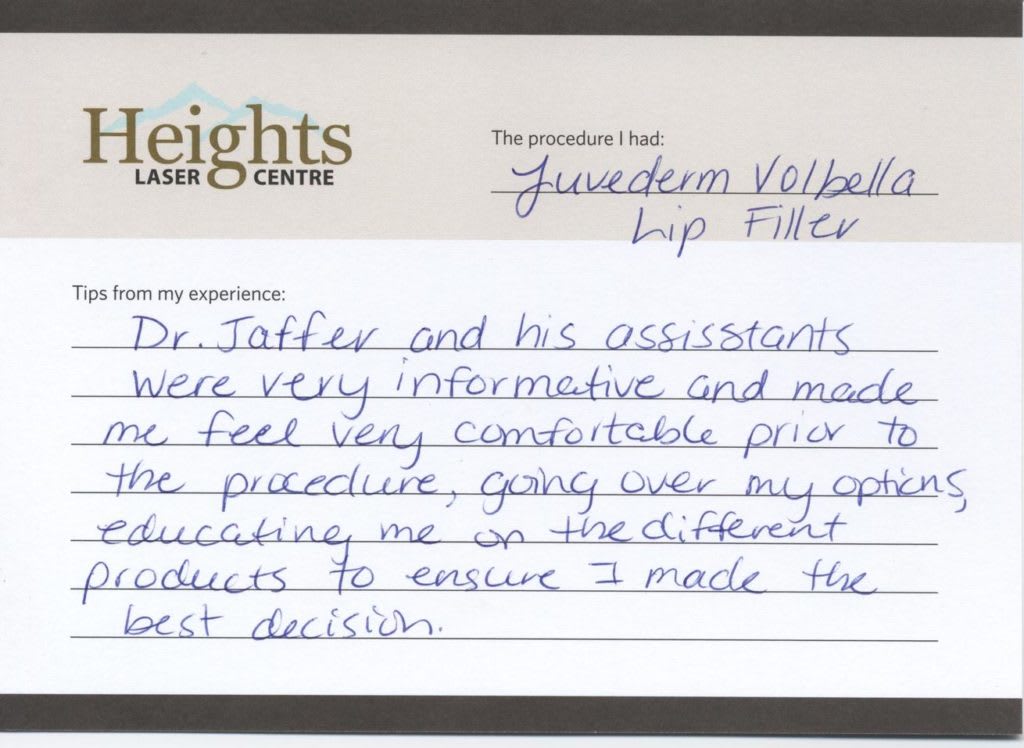 Heights
LASER CENTRE
The procedure I had:
Juvederm Volbella
Lip Filler
Tips from my experience:
Dr. Jaffer and his assisstants
were very informative and made
me feel very comfortable prior to
the procedure, going over my options,
educating me on the different
products to ensure I made the
best decision.